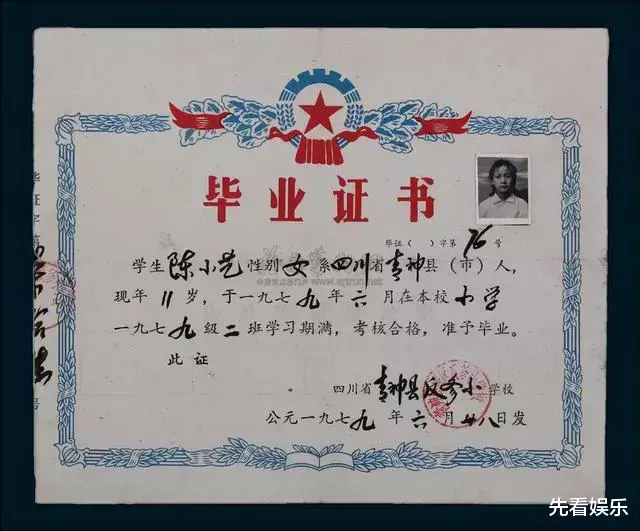 毕业证书
毕证( )字第76号
学生陈小艺性别女系四川省青神县(市)人,
现年11岁,于一九七九年六月在本校小学
一九七九级二班学习期满,考核合格,准予毕业。
此证
四川省青神县反修小学校
公元一九七九年六月廿八日发
毕证字第
号
先看娱乐